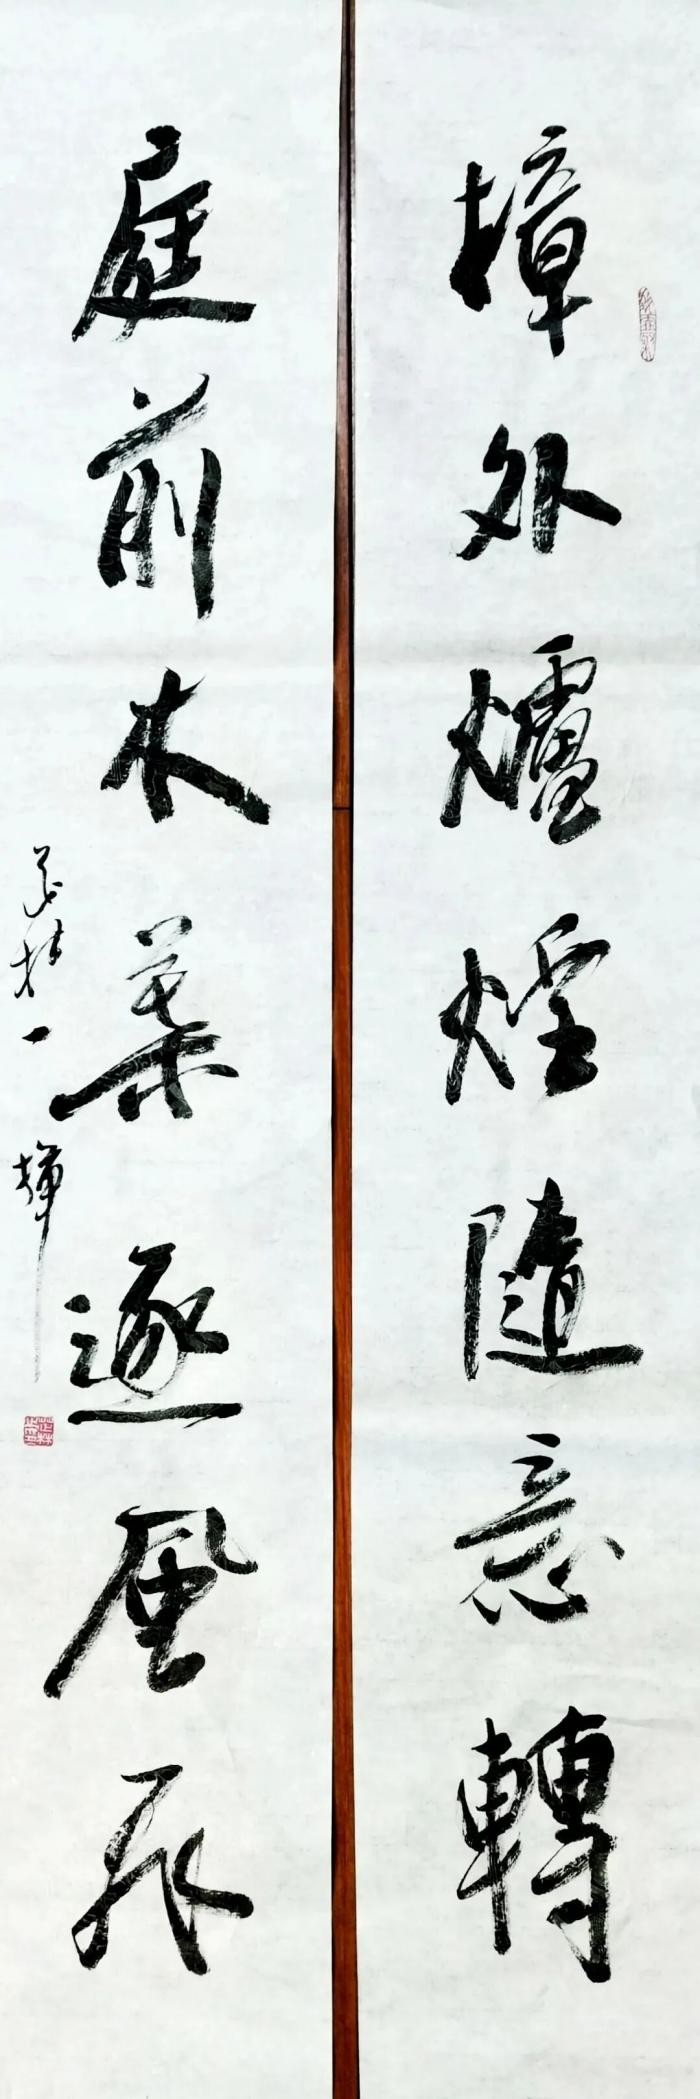 樟外爐煙隨意轉
庭前木葉逐風飛
芷林一揮